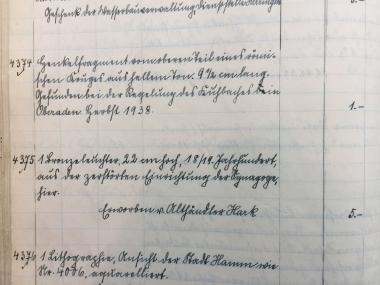 Geschenk der Wasserbauverwaltung, Dienststelle
5.-
4374 Henkelfragment vom oberen Teil eines römi-
schen Kruges aus hellem Ton. 9½ cm lang.
Gefunden bei der Regelung des Kuhbaches bein
Oberaden Herbst 1938. 1.-
4375 1 Bronzeleuchter, 22 cm hoch, 18/19. Jahrhundert,
aus der zerstörten Einrichtung der Synagoge,
hier.
Erworben v. Althändler Hark 5.-
4376 1 Lithographie, Ansicht der Stadt Hamm wie
Nr. 4006, aquarelliert.